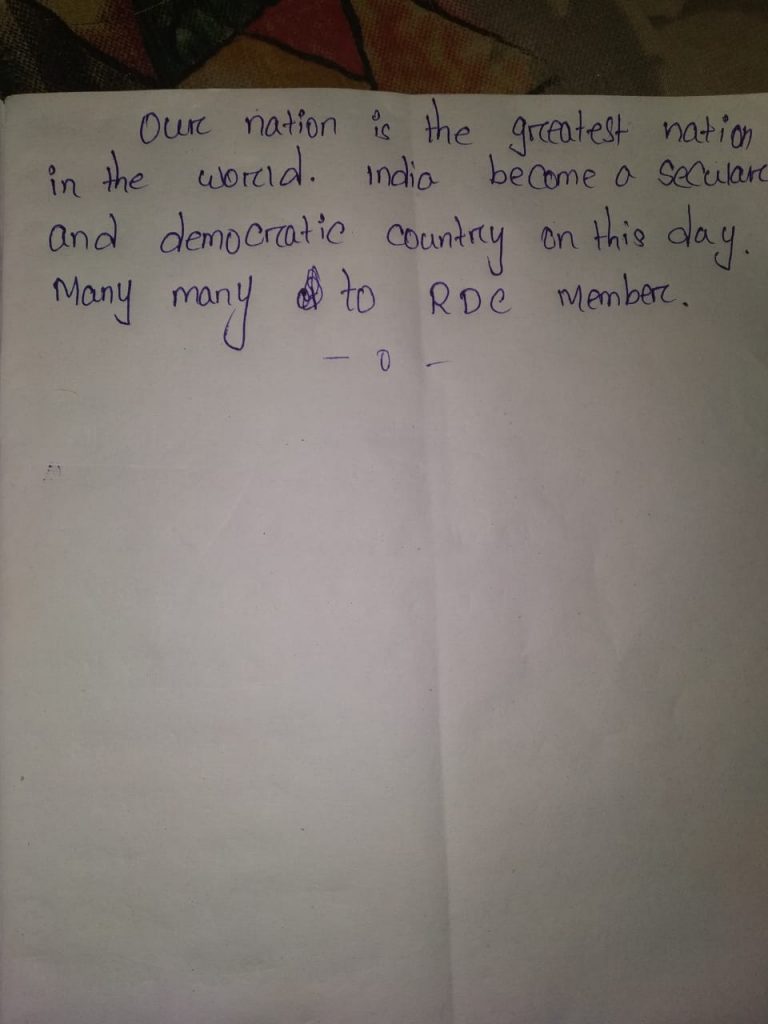 Our nation is the greatest nation
in the world. India become a secular
and democratic country on this day.
Many many to RDC member.
- 0 -